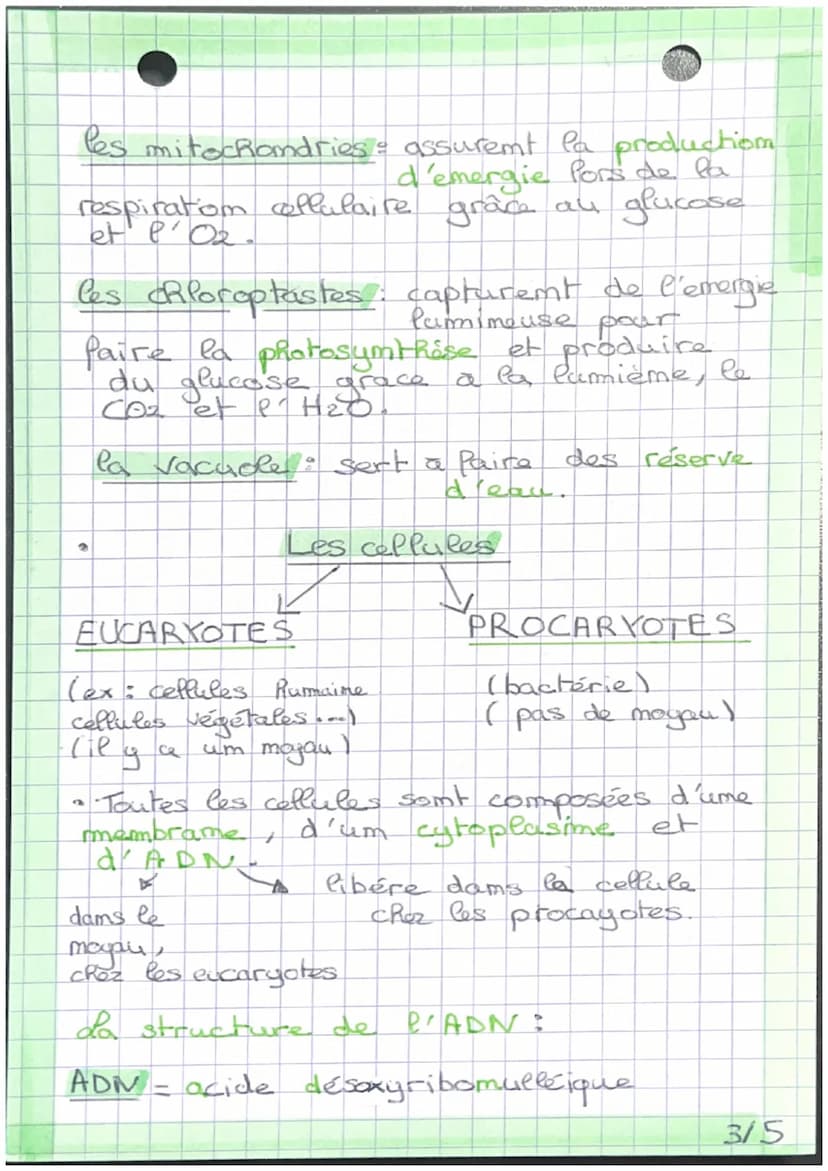 les mitochondries : assurent la production
d'énergie lors de la
respiration cellulaire grâce au glucose
et l'O2.
les chloroplastes : capturent de l'energie
lumineuse pour
faire la photosynthèse et produire
du glucose grace a la lumième, le
CO2 et l'H2O.
la vacuole : sert a faire des réserve
d'eau.
Les cellules
EUCARYOTES
PROCARYOTES
(ex : cellules humaine
cellules végétales...)
(il y a un noyau)
(bactérie)
(pas de noyau)
• Toutes les cellules sont composées d'une
membrane, d'un cytoplasme et
d'ADN.
libére dans la cellule
chez les procayotes.
dans le
noyau,
chez les eucaryotes
La structure de l'ADN :
ADN = acide désoxyribonulléique
3/5